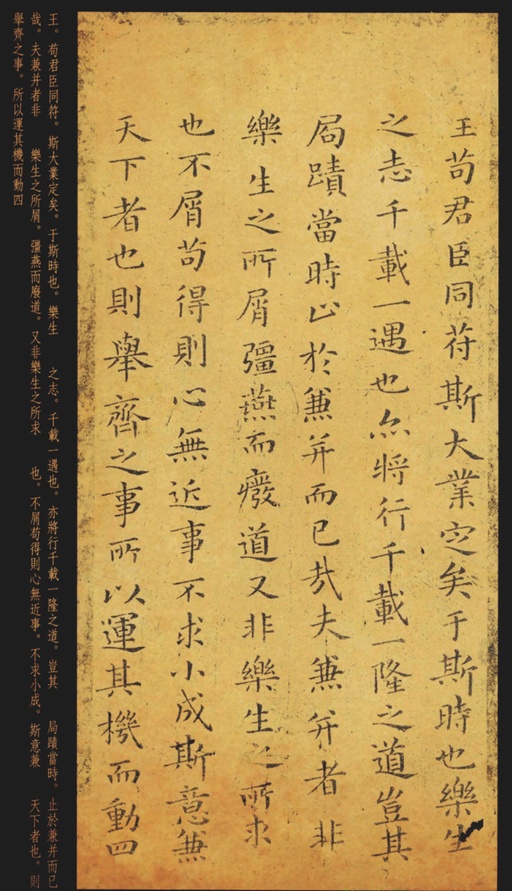 王苟君臣同苻斯大業定矣于斯時也樂生
之志千載一遇也亦將行千載一隆之道豈其
局蹟當時止於兼并而已㢤夫兼并者非
樂生之所屑彊燕而癈道又非樂生之所求
也不屑苟得則心無近事不求小成斯意兼
天下者也則舉齊之事所以運其機而動四
王。苟君臣同符。斯大業定矣。于斯時也。樂生 之志。千載一遇也。亦將行千載一隆之道。豈其 局蹟當時。止於兼并而已
哉。夫兼并者非 樂生之所屑。彊燕而廢道。又非樂生之所求 也。不屑苟得則心無近事。不求小成。斯意兼 天下者也。則
舉齊之事。所以運其機而動四